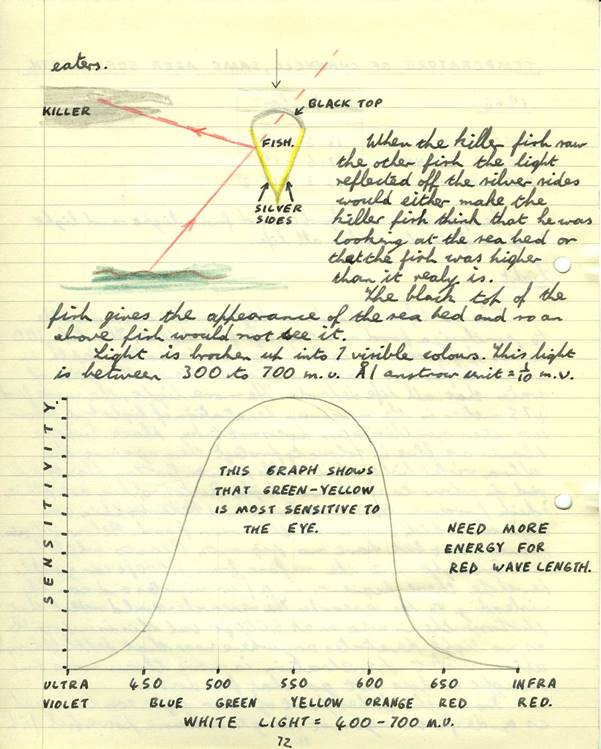 eaters.
KILLER
BLACK TOP
FISH.
SILVER
SIDES
When the killer fish saw
the other fish the light
reflected off the silver sides
would either make the
killer fish think that he was
looking at the sea bed or
that the fish was higher
than it realy is.
The black top of the
fish gives the appearance of the sea bed and so an
above fish would not see it.
Light is brocken up into 7 visible colours. This light
is between 300 to 700 m.u. Å 1 anstrow unit = 1/10 m.u.
SENSITIVITY.
THIS GRAPH SHOWS
THAT GREEN-YELLOW
IS MOST SENSITIVE TO
THE EYE.
NEED MORE
ENERGY FOR
RED WAVE LENGTH.
ULTRA 450 500 550 600 650 INFRA
VIOLET BLUE GREEN YELLOW ORANGE RED RED.
WHITE LIGHT = 400-700 M.U.
72